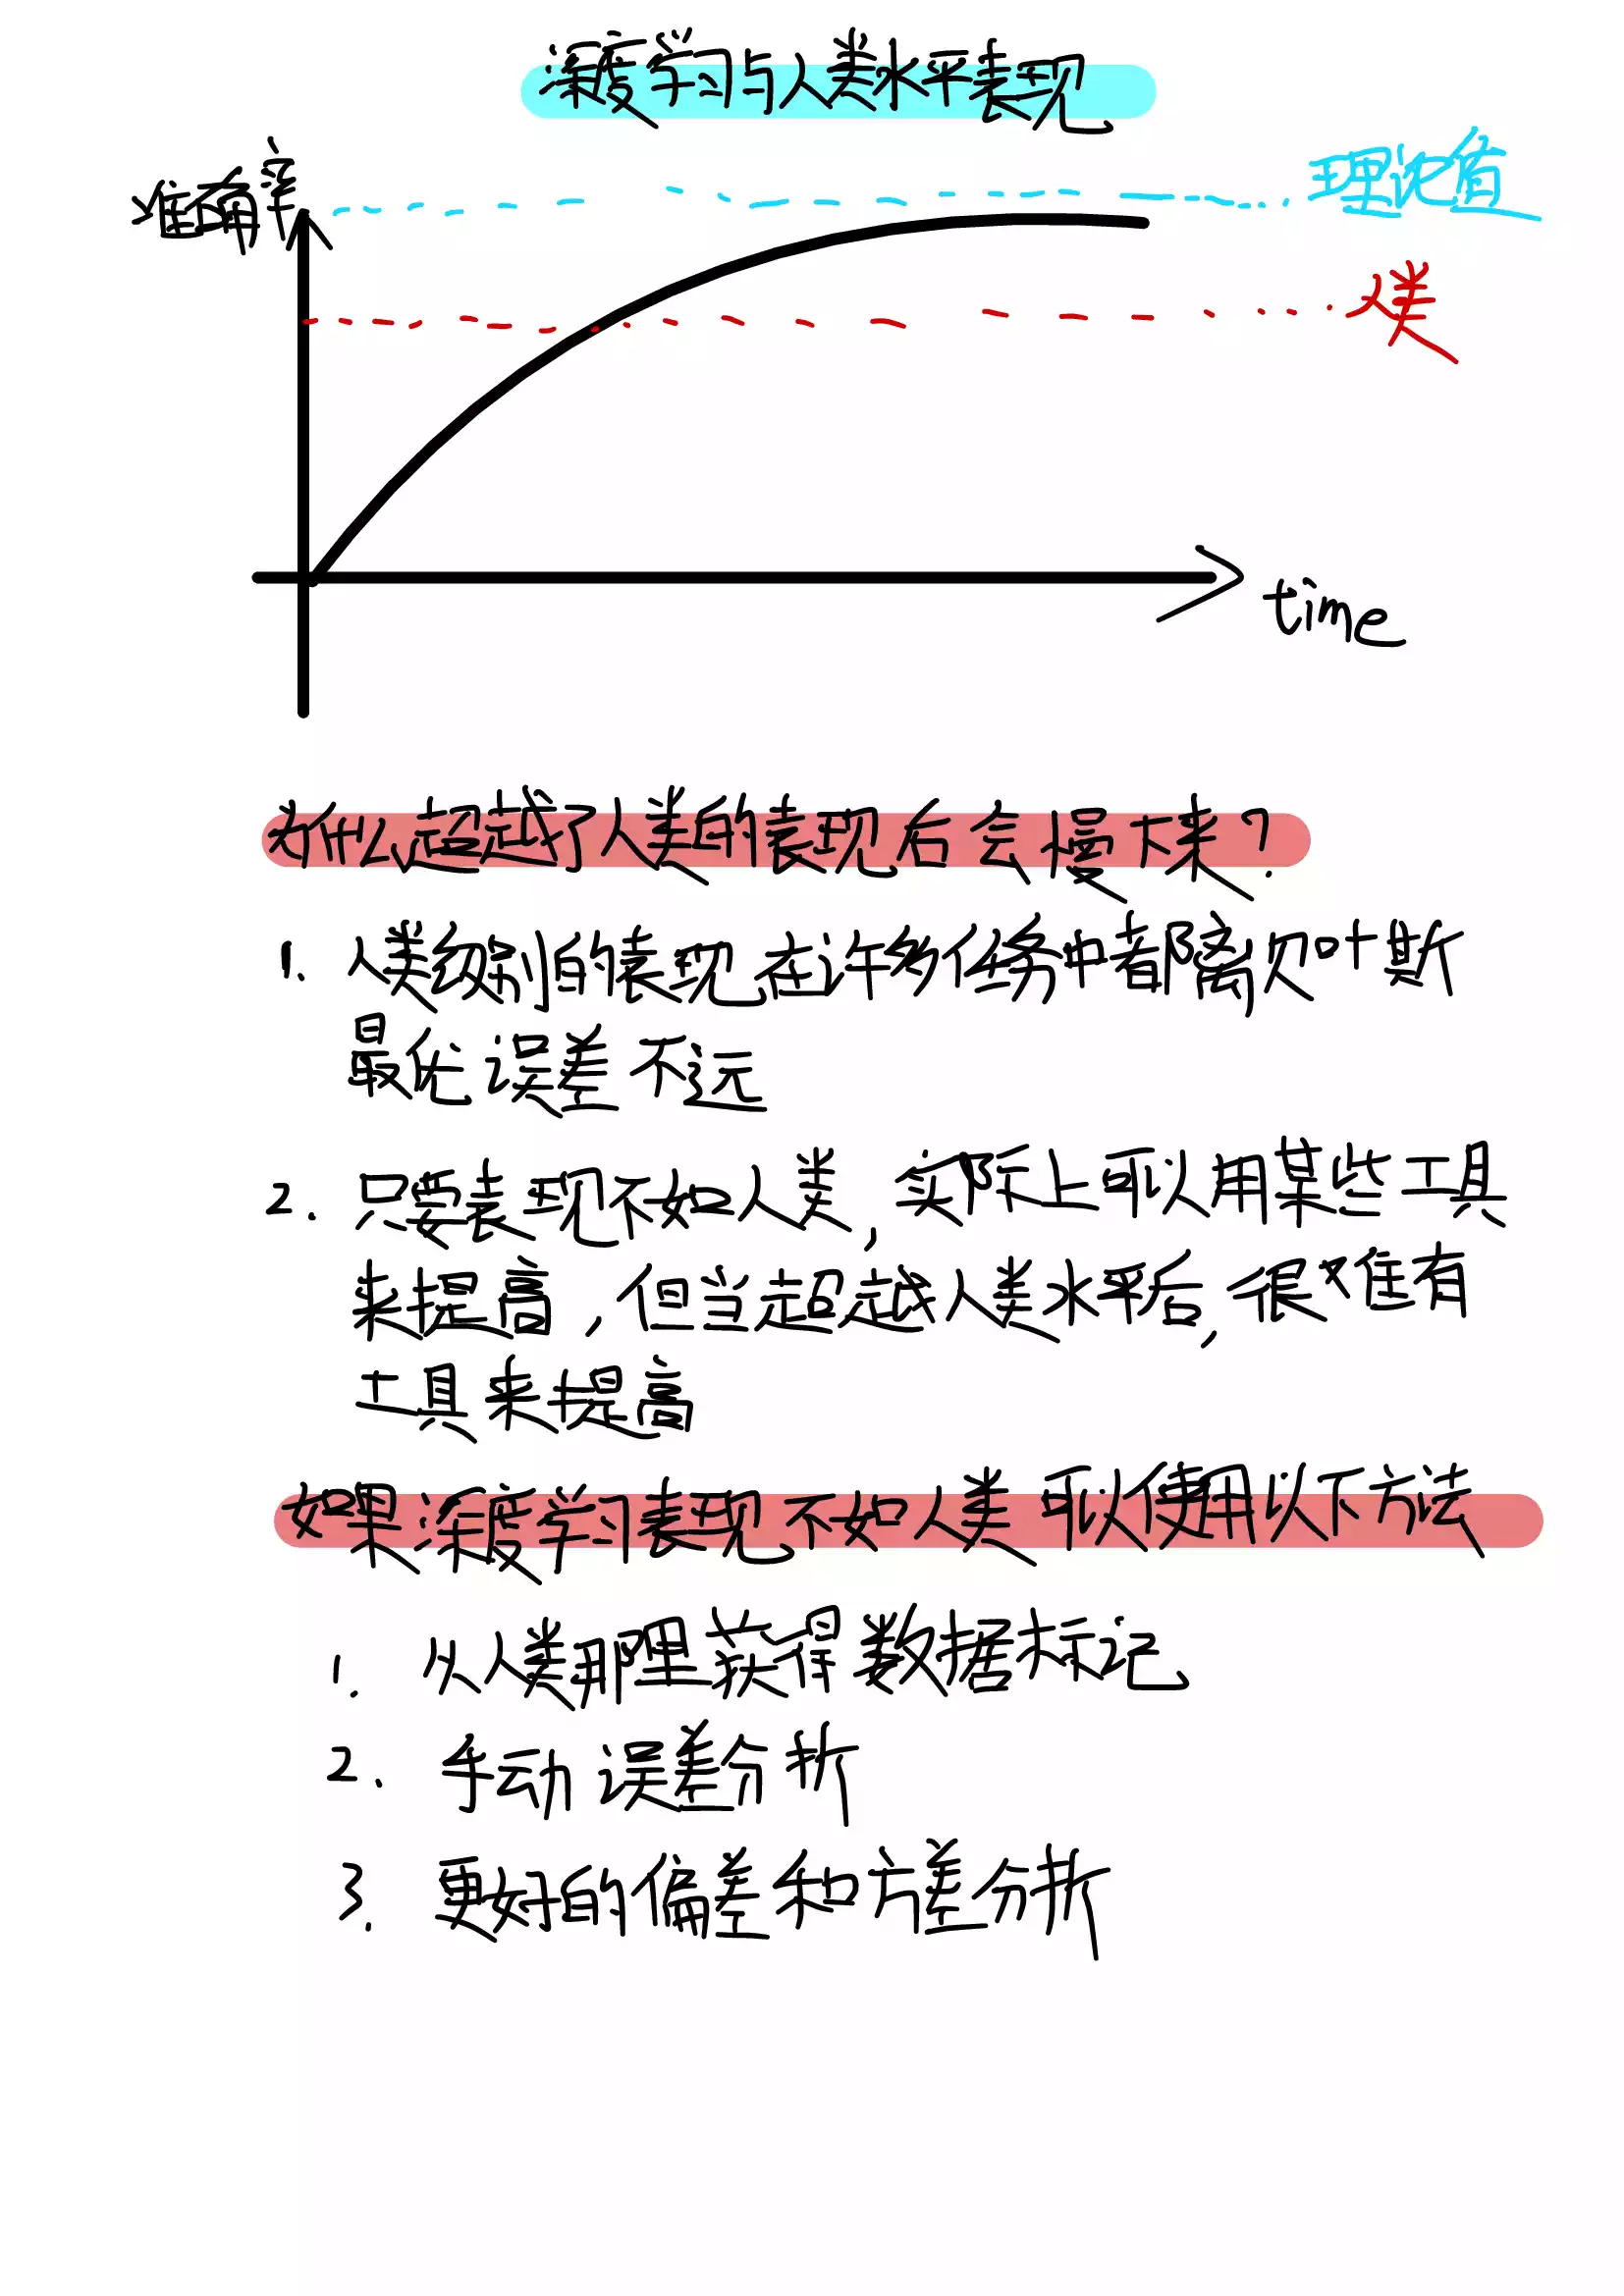 深度学习与人类水平表现
准确率
理论值
人类
time
为什么超越了人类的表现后会慢下来?
1. 人类级别的表现在许多任务中都离贝叶斯
最优误差不远
2. 只要表现不如人类, 实际上可以用某些工具
来提高, 但当超越人类水平后, 很难有
工具来提高
如果深度学习表现不如人类 可以使用以下方法
1. 从人类那里获得数据标记
2. 手动误差分析
3. 更好的偏差和方差分析